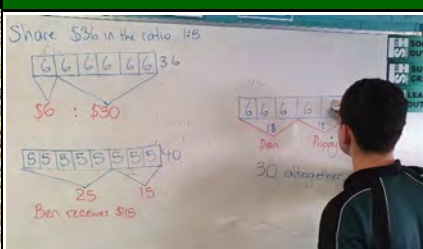 Share $36 in the ratio 1:5
6 6 6 6 6 6 36
$6 : $30
5 5 5 5 5 5 5 5 40
25 15
Ben receives $15
6 6 6 6
18 12
Dan Poppy
30 altogether